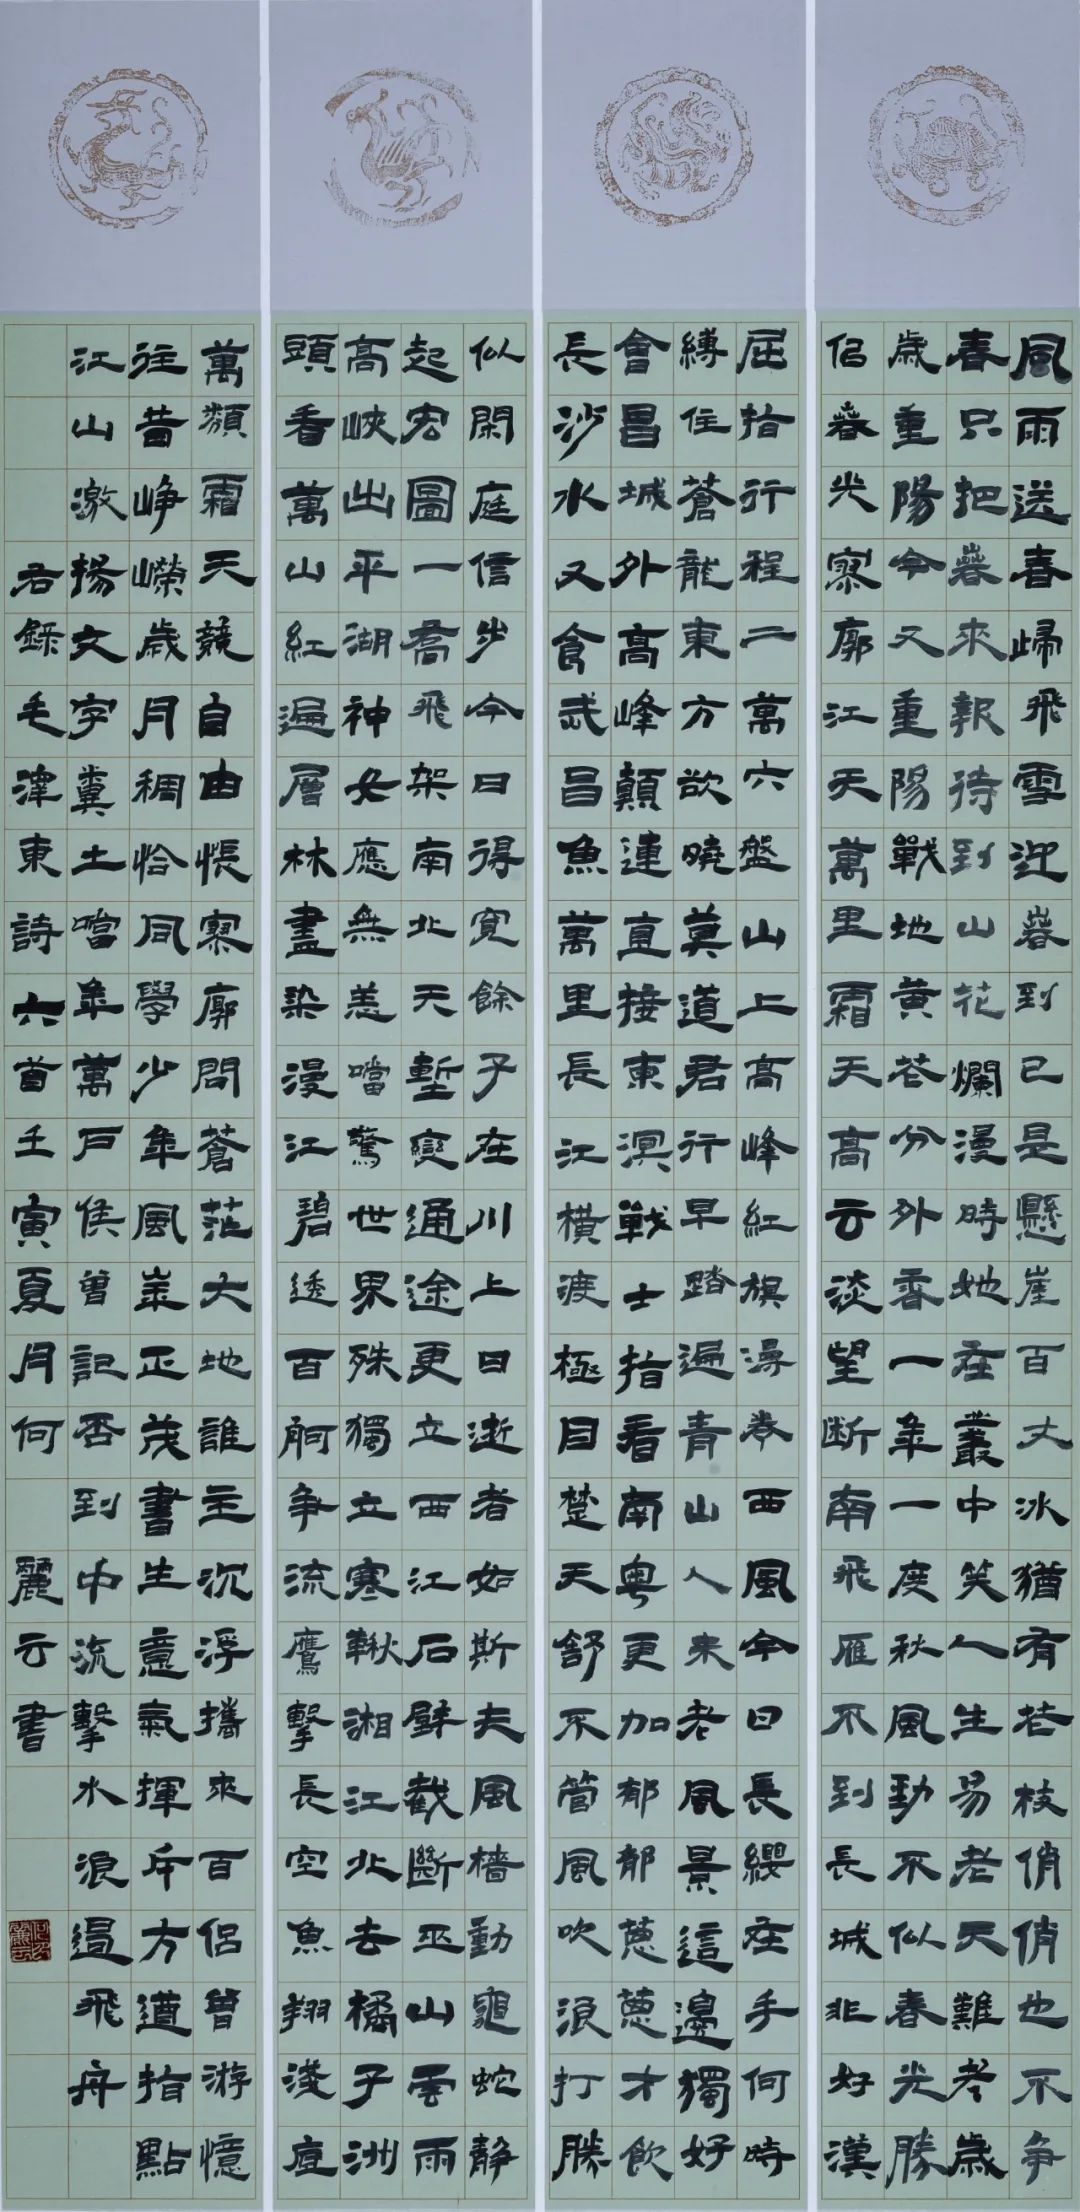 風雨送春歸飛雪迎萅到已是懸崖百丈冰猶有芲枝俏俏也不争
春只把萅來報待到山花爛漫時她在叢中笑人生易老天難老歲
歲重陽今又重陽戰地黄芲分外香一年一度秋風勁不似春光勝
佀萅光寥廓江天萬里霜天高云淡望断南飛雁不到長城非好漢
屈指行程二萬六盤山上高峰紅旗漫卷西風今日長纓在手何時
縛住蒼龍東方欲曉莫道君行早踏遍青山人未老風景這邊獨好
會昌城外高峰顛連直接東溟戰士指看南粤更加郁郁蔥蔥才飲
長沙水又食武昌魚萬里長江橫渡極目楚天舒不管風吹浪打勝
似閑庭信步今日得寬餘子在川上曰逝者如斯夫風檣動龜蛇静
起宏圖一喬飛架南北天塹變通途更立西江石壁截斷巫山雲雨
高峽出平湖神女應無恙噹驚世界殊獨立寒秋湘江北去橘子洲
頭看萬山紅遍層林盡染漫江碧透百舸争流鷹擊長空魚翔淺底
萬類霜天競自由悵寥廓問蒼茫大地誰主沉浮攜來百侶曾游憶
往昔崢嶸歲月稠恰同學少年風華正茂書生意氣揮斥方遒指點
江山激揚文字糞土噹年萬戶侯曾記否到中流擊水浪遏飛舟
右録毛澤東詩六首壬寅夏月何麗云書